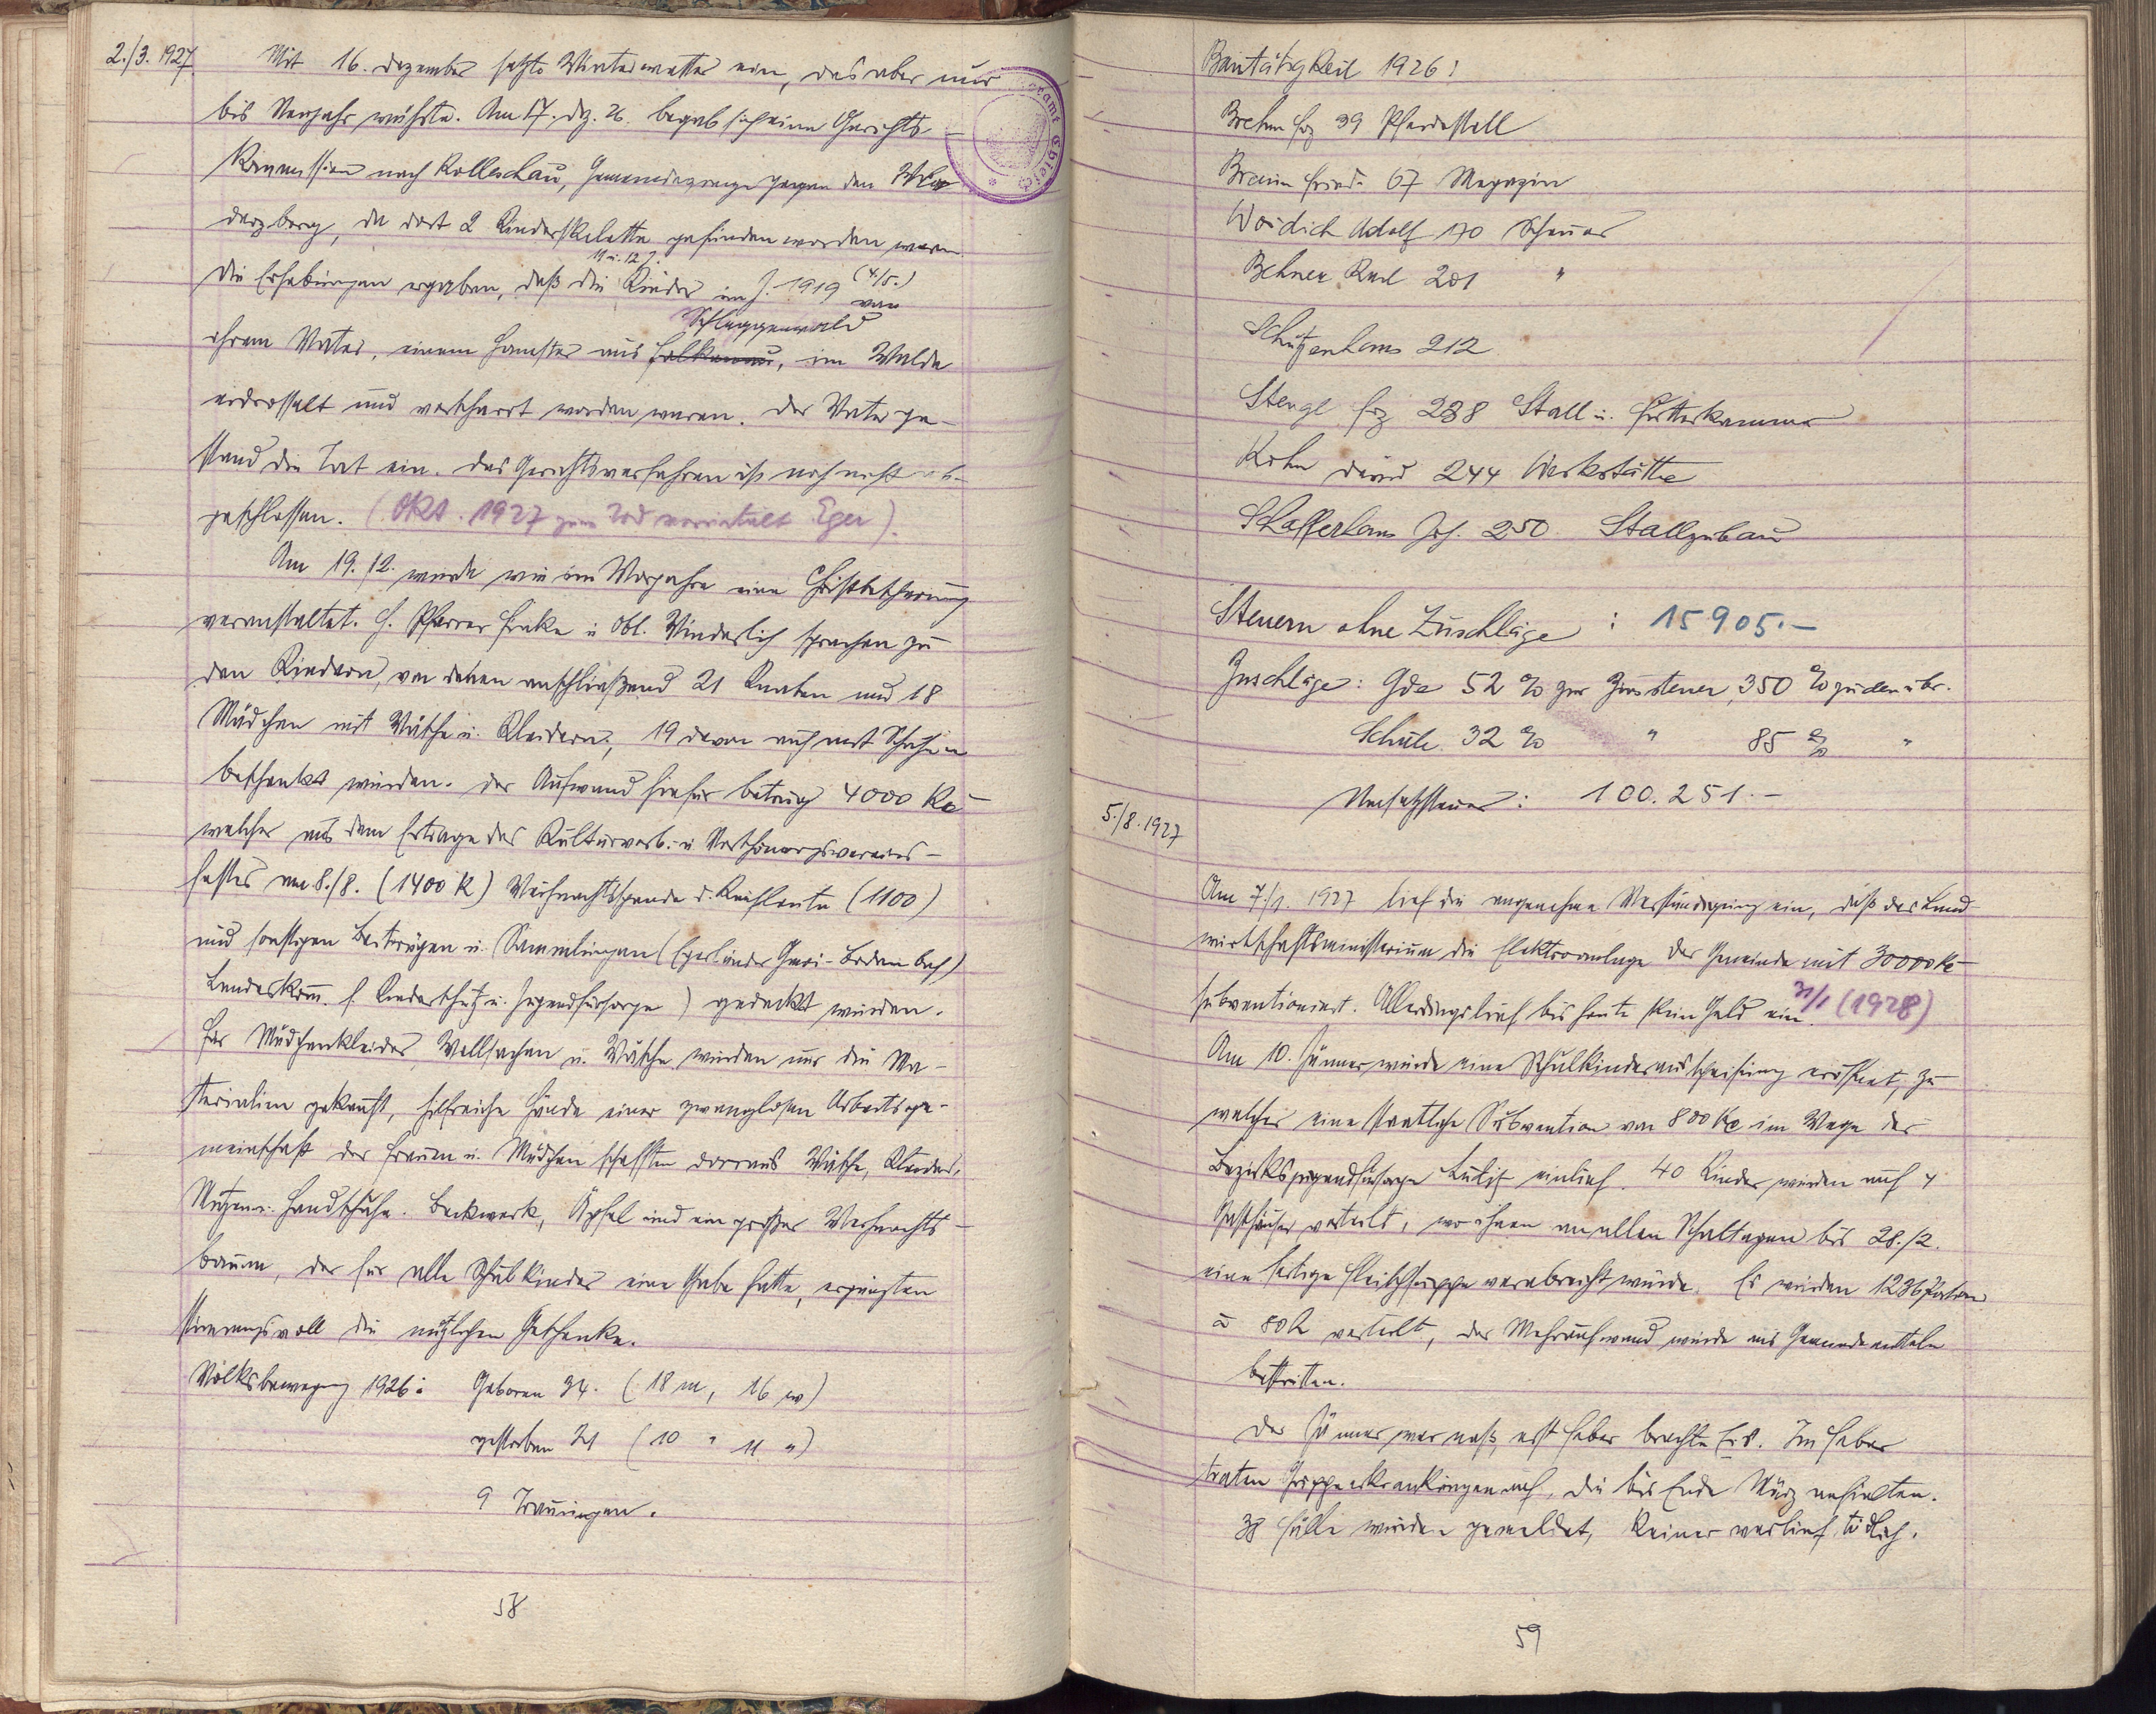 2./3. 1927.
Mit 16. Dezember setzte Winterwetter ein, das aber nur
bis Neujahr währte. Am 17. Dez. 26. begab sich eine Gerichts-
Kommission nach Kolleschau, Gemeindegrenze gegen den
derzberg, da dort 2 Kinderskelette gefunden worden waren
11 u. 12 J.
Die Erhebungen ergaben, daß die Kinder im J. 1919 (4./5.) von
Schlaggenwald
ihrem Vater, einem Hamster aus Falkenau, im Walde
erdrosselt und verscharrt worden waren. Der Vater ge-
stand die Tat ein. Das Gerichtsverfahren ist noch nicht ab-
geschlossen. (Okt. 1927 zum Tod verurteilt Eger).
Am 19./12. wurde wie im Vorjahre eine Christbescherung
veranstaltet. H. Pfarrer u Obl. sprachen zu
den Kindern, von denen anschließend 21 Knaben und 18
Mädchen mit Wäsche u. Kleidern, 19 davon auch mit Schuhen
beschenkt wurden. Der Aufwand hiefür betrug 4000 Kč
welcher aus dem Ertrage des Kulturverb. u Verschönerungsvereins-
festes am 8./8. (1400 K) Weihnachtsspende d. Kaufleute (1100)
und sonstigen Beiträgen u. Sammlungen (Egerländer Gmoi - Bodenbach)
Landeskom. f. Kinderschutz u. Jugendfürsorge) gedeckt wurden.
Für Mädchenkleider, Wollsachen u. Wäsche wurden nur die Ma-
terialien gekauft, hilfreiche Hände einer zwanglosen Arbeitsge-
meinschaft der Frauen u. Mädchen schafften daraus Wäsche, Kleider,
Mützen u. Handschuhe. Backwerk, Äpfel und ein großer Weihnachts-
baum, der für alle Schulkinder eine Gabe hatte, ergänzten
stimmungsvoll die nützlichen Geschenke.
Volksbewegung 1926: Geboren 34. (18 m, 16 w)
gestorben 21 (10 " 11 ")
9 Trauungen.
58
Bautätigkeit 1926:
Brehm Frz 39 Pferdestall
Braun Fried. 67 Magazin
Woidich Adolf 170 Scheuer
Behner Karl 201 "
Schützenhaus 212
Stengl Frz 238 Stall u. Futterkammer
Kohn David 244 Werkstätte
Schafferhans Jos. 250 Stallzubau
Steuern ohne Zuschläge : 15905.-
Zuschläge: Gde 52 % zur Zinssteuer, 350 % zu den übr.
Schule 32 % " 85 % "
Umsatzsteuer: 100.251.-
5./8. 1927
Am 7./1. 1927 lief die angenehme Verständigung ein, daß das Land-
wirtschaftsministerium die Elektroanlage der Gemeinde mit 30000 Kč
subventioniert. Allerdings lief bis heute kein Geld ein. 31/1 (1928)
Am 10. Jänner wurde eine Schulkinderausspeisung eröffnet, zu
welcher eine staatliche Subvention von 800 Kč im Wege der
Bezirksjugendfürsorge Luditz einlief. 40 Kinder wurden auf 4
Gasthäuser verteilt, wo ihnen an allen Schultagen bis 28./2.
eine fertige Fleischsuppe verabreicht wurde. Es wurden 1236 Portionen
à 80 h verteilt, der Mehraufwand wurde aus Gemeindemitteln
bestritten.
Der Jänner war naß, erst Feber brachte Eis. Im Feber
traten Grippeerkrankungen auf, die bis Ende März anhielten.
38 Fälle wurden gemeldet, keiner verlief tödlich.
59